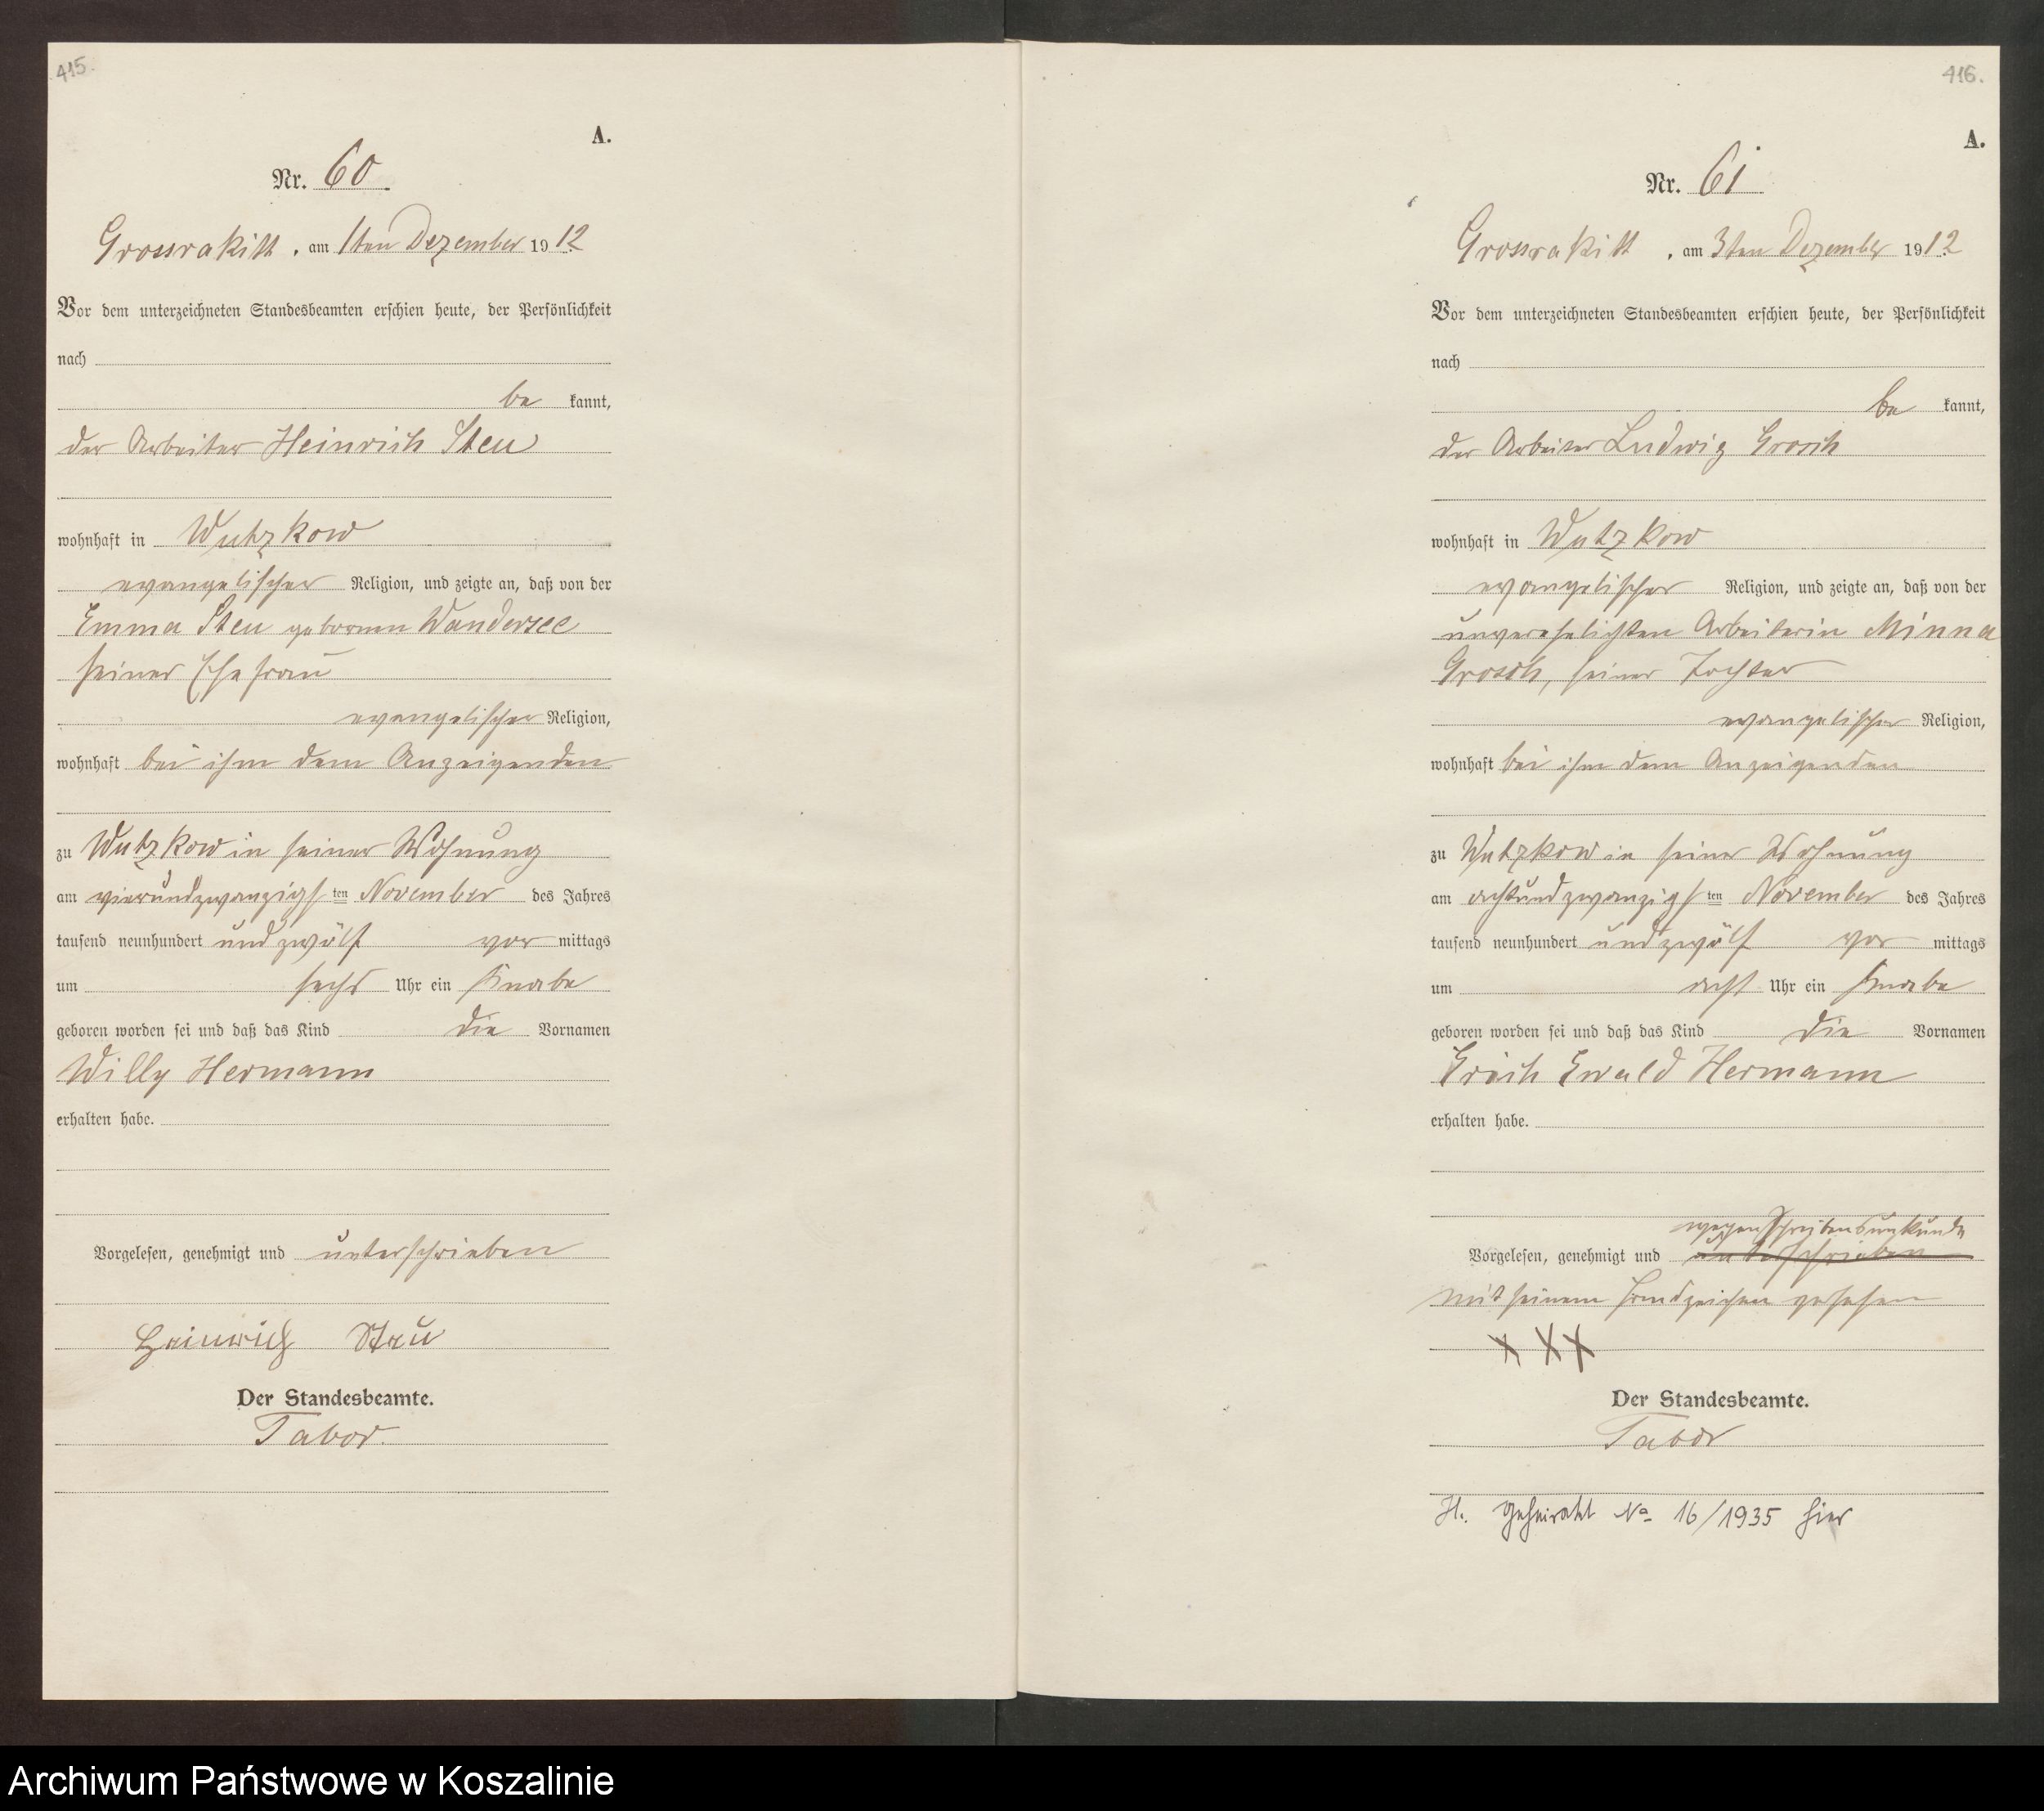 415.
A.
Nr. 60
Grossrakitt, am 1ten Dezember 1912
Vor dem unterzeichneten Standesbeamten erschien heute, der Persönlichkeit
nach
be kannt,
der Arbeiter Heinrich Steu
wohnhaft in Wutzkow
evangelischer Religion, und zeigte an, daß von der
Emma Steu geborenen Wandersee
seiner Ehefrau
evangelischer Religion,
wohnhaft bei ihm dem Anzeigenden
zu Wutzkow in seiner Wohnung
am vierundzwanzigsten November des Jahres
tausend neunhundert und zwölf vor mittags
um sechs Uhr ein Knabe
geboren worden sei und daß das Kind die Vornamen
Willy Hermann
erhalten habe.
Vorgelesen, genehmigt und unterschrieben
Heinrich Steu
Der Standesbeamte.
Tabor.
416.
A.
Nr. 61
Grossrakitt, am 3ten Dezember 1912
Vor dem unterzeichneten Standesbeamten erschien heute, der Persönlichkeit
nach
be kannt,
der Arbeiter Ludwig Grosch
wohnhaft in Wutzkow
evangelischer Religion, und zeigte an, daß von der
unverehelichten Arbeiterin Minna
Grosch, seiner Tochter
evangelischer Religion,
wohnhaft bei ihm dem Anzeigenden
zu Wutzkow in seiner Wohnung
am achtundzwanzigsten November des Jahres
tausend neunhundert und zwölf vor mittags
um acht Uhr ein Knabe
geboren worden sei und daß das Kind die Vornamen
Erich Ewald Hermann
erhalten habe.
wegen Schreibensunkunde
Vorgelesen, genehmigt und unterschrieben
mit seinem Handzeichen versehen
XXX
Der Standesbeamte.
Tabor
H. geheiratet No 16/1935 hier
Archiwum Państwowe w Koszalinie